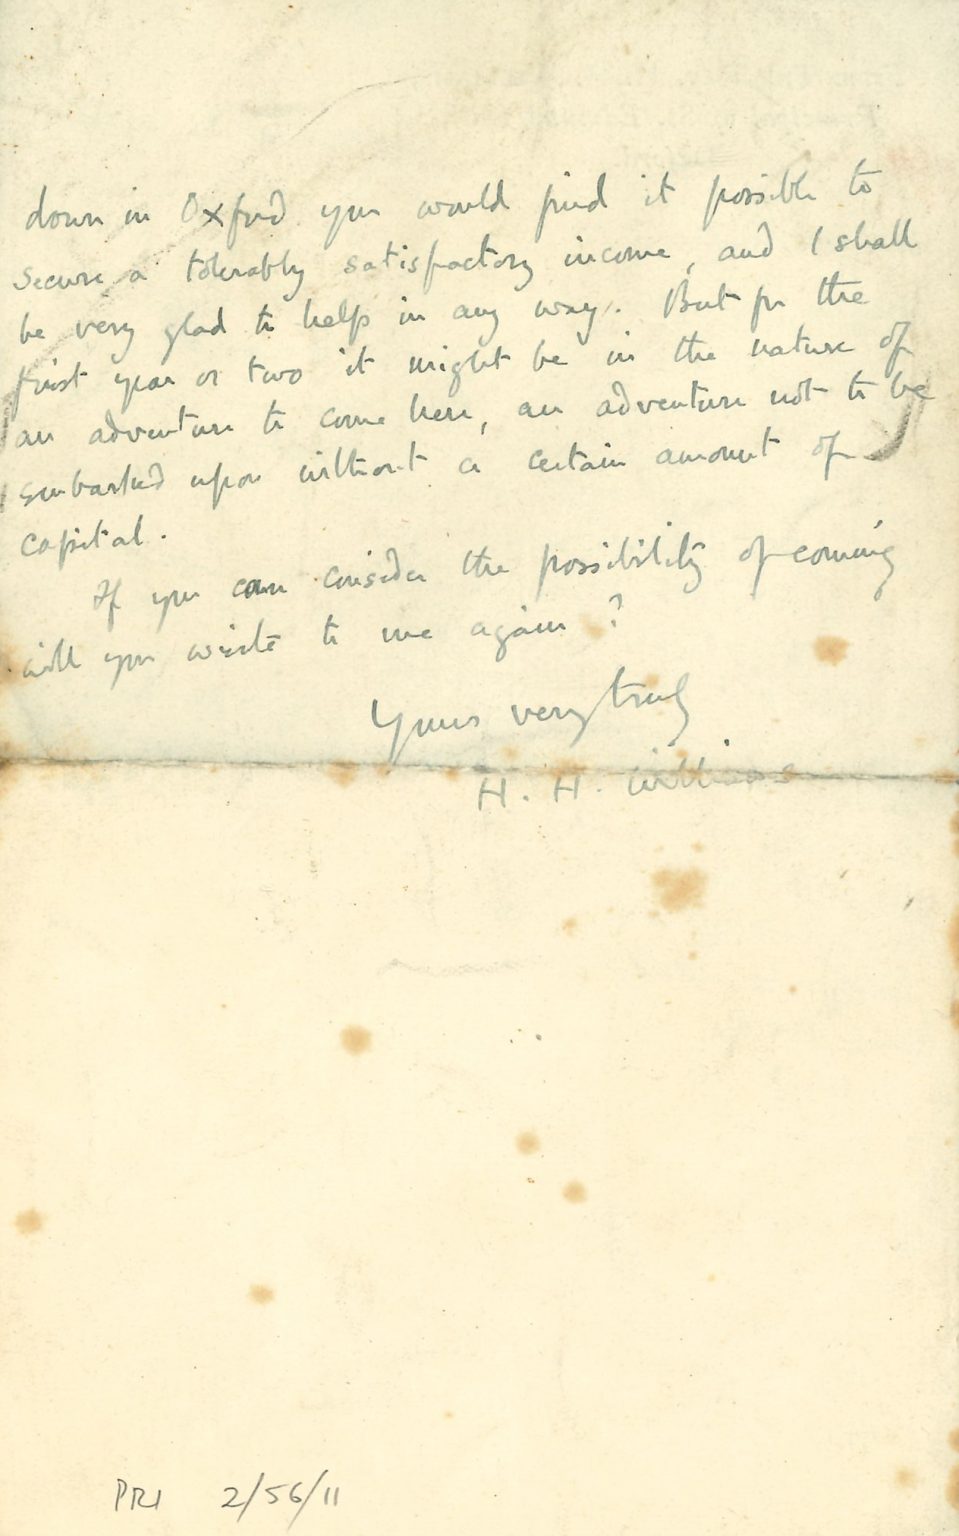 down in Oxford you would find it possible to
secure a tolerably satisfactory income, and I shall
be very glad to help in any way. But for the
first year or two it might be in the nature of
an adventure to come here, an adventure not to be
embarked upon without a certain amount of
capital.
If you can consider the possibility of coming
will you write to me again?
Yours very truly
H. H. Williams
PRI 2/56/11